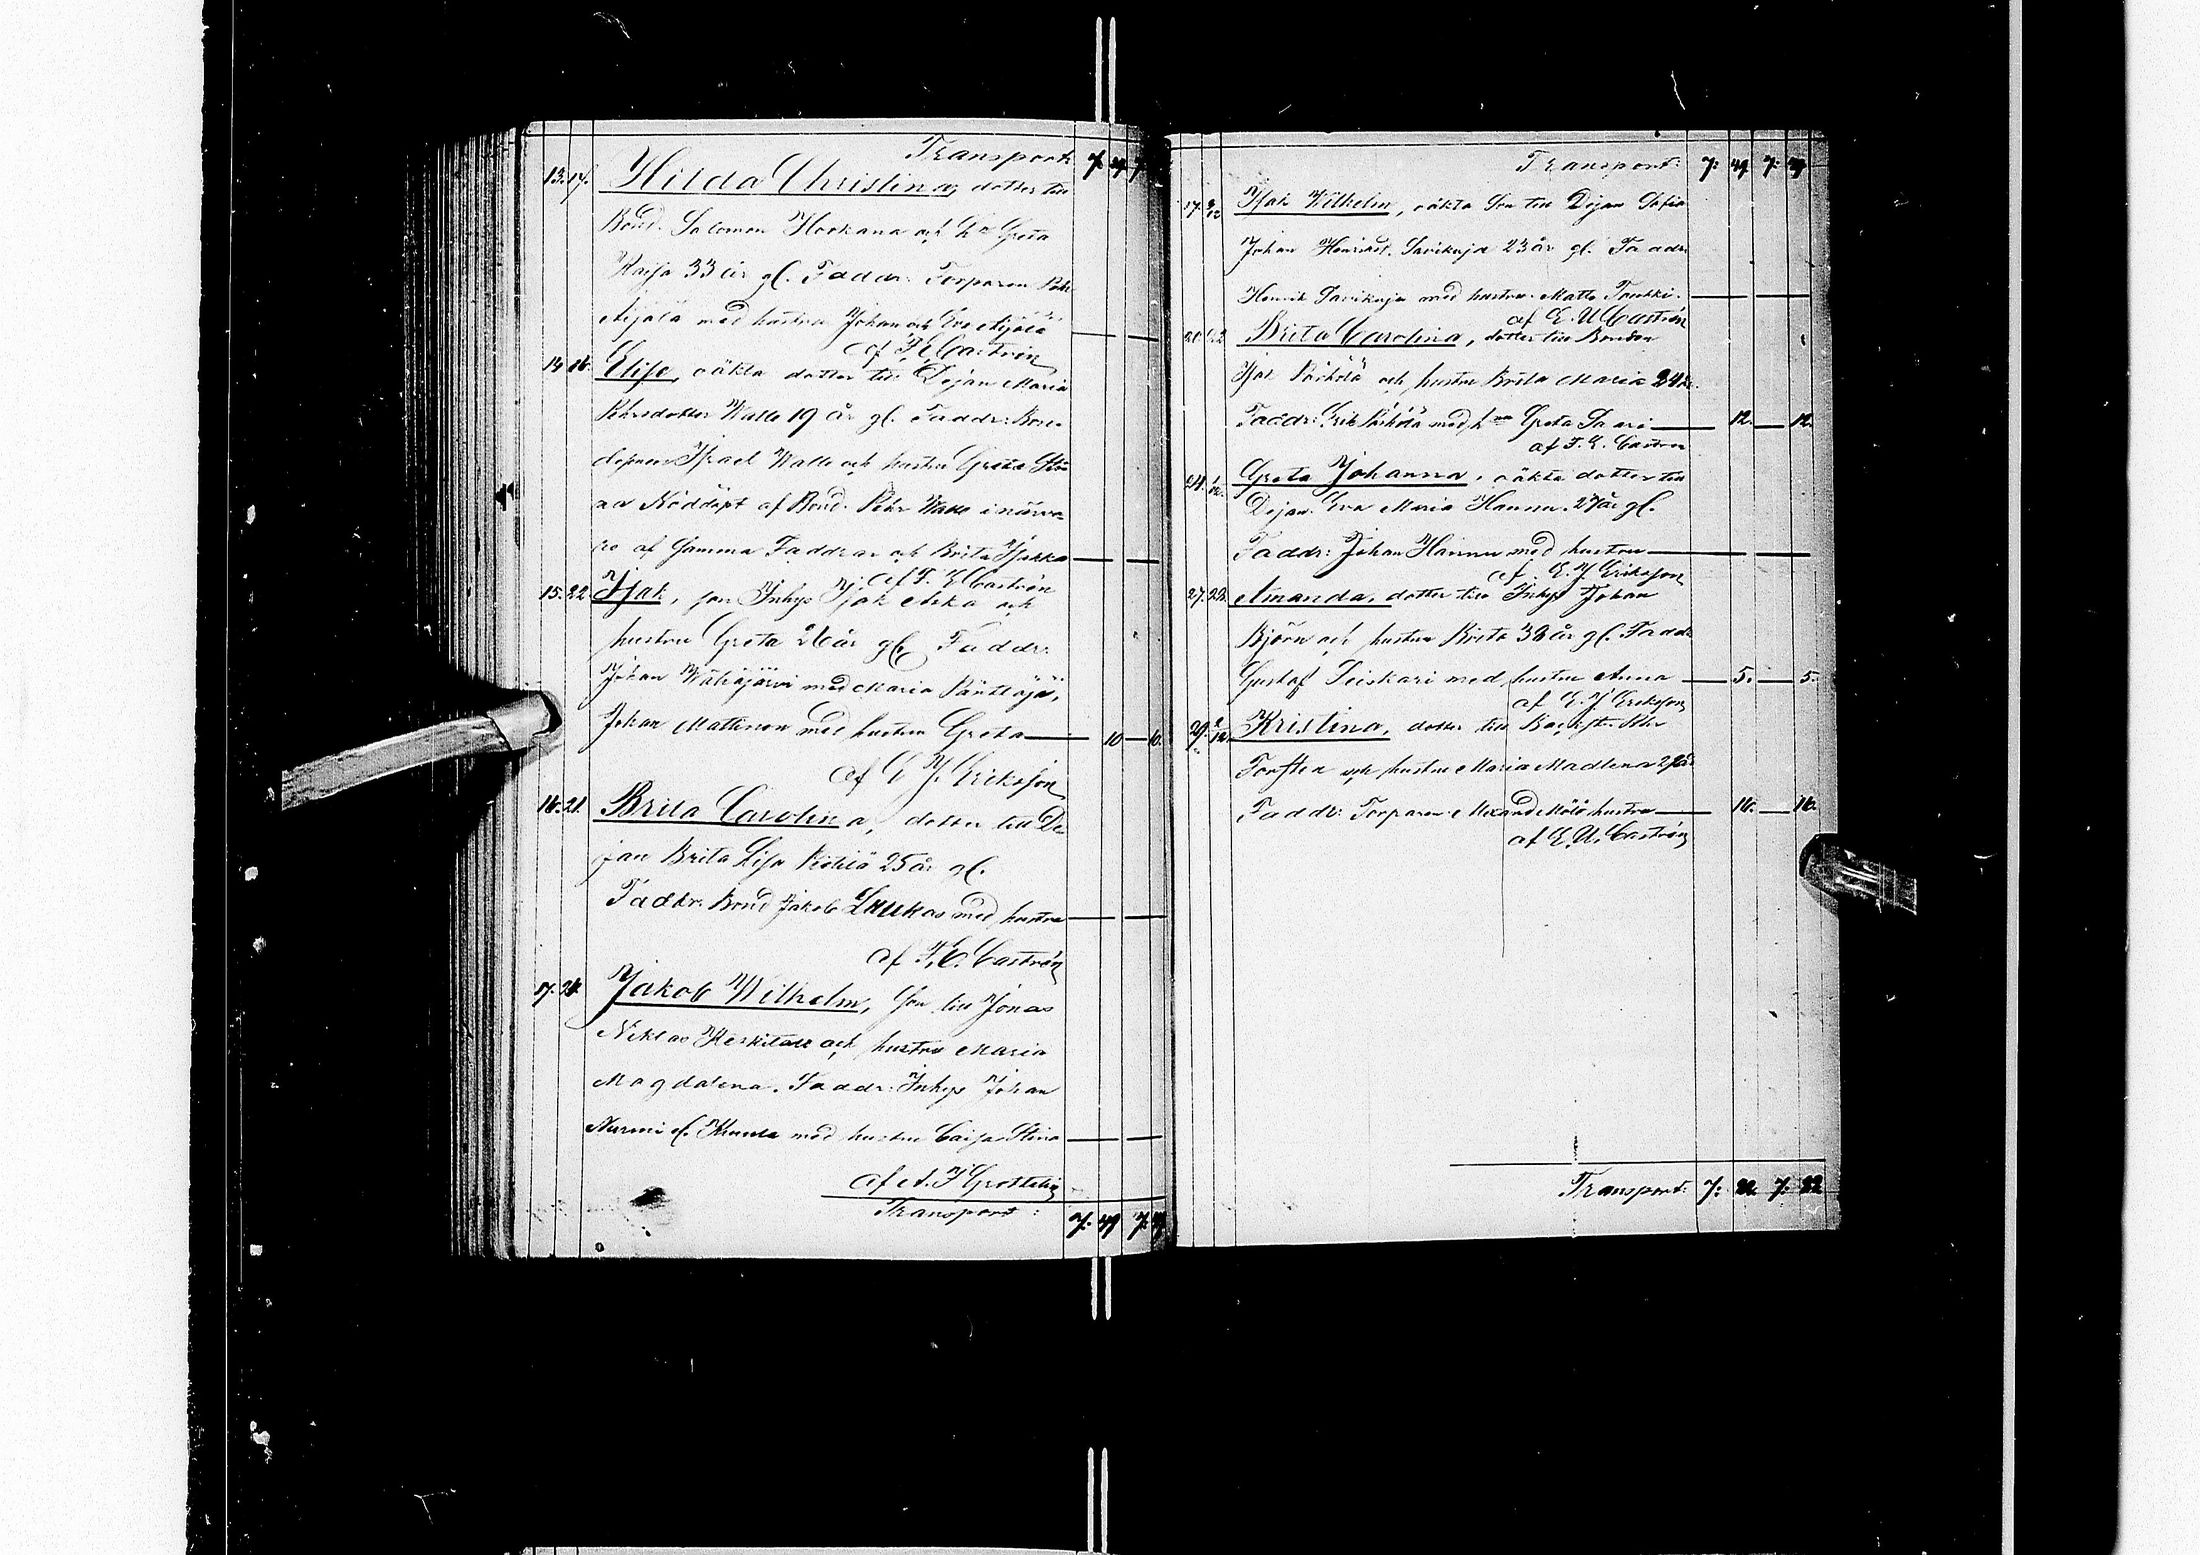 Transport: 7. 49 7.
13. 14. Hilda Christina, dotter till
Bond. Salomon Hookana och h Greta
Kaisa 33 år gl. Faddr. Torparen Pehr
Äijälä med hustru Johan och Eva Äijälä
af F. E. Castrén
14 16. Elise, oäkta dotter till Dejan Maria
Pehrsdotter Walle 19 år gl. Faddr: Bon-
desonen Israel Walle och hustru Greta
Nöddöpt af Bond. Pehr Walle i närva-
ro af samma Faddrar och Brita
af F. E. Castrén
15. 22. Isak, son Inhys Isak Aska och
hustru Greta 26 år gl. Faddr:
Johan Wähäjärvi med Maria Pänttäjä,
Johan Mattinen med hustru Greta — 10 — 10.
af E J Eriksson
16. 21. Brita Carolina, dotter till De-
jan Brita Lisa 25 år gl.
Faddr: Bond Jakob Laukas med hustru — —
af F. E. Castrén
17. 24. Jakob Wilhelm, son till Jonas
Niklas Keskitalo och hustru Maria
Magdalena. Faddr: Inhys Johan
Nurmi med hustru Caisa Stina — —
af A. F Grottelin
Transport: 7. 49 7. 49
Transport: 7: 49 7: 49
17. 2/12 Isak Wilhelm, oäkta Son till Dejan Sofia
Johan Henriksd. Savikuja 23 år gl. Faddr:
Henrik Savikuja med hustru. Matts — —
af E. W Castrén
Brita Carolina, dotter till Bonden
Isak och hustru Brita Maria 24 år.
Faddr: Erik med h Greta — 12. — 12.
af F. E. Castrén
24. Greta Johanna, oäkta dotter till
Dejan Eva Maria Hannu. 27 år gl.
Faddr: Johan Hannu med hustru — —
af E. J. Eriksson
27. 28. Amanda, dotter till Inhys Johan
Björn och hustru Brita 38 år gl. Faddr
Gustaf Peiskari med hustru Anna — 5. — 5.
af E. J Eriksson
29. 2/12 Kristina, dotter till Backst. Pehr
Torsten och hustru Maria Madlena
Faddr: Torparen hustru — 16. — 16.
af E. W. Castrén
Transport: 7: 82 7: 82